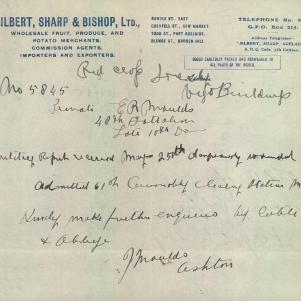 ILBERT, SHARP & BISHOP, Ltd.,
WHOLESALE FRUIT, PRODUCE, AND
POTATO MERCHANTS,
COMMISSION AGENTS,
IMPORTERS AND EXPORTERS.
RUNDLE ST. EAST
GRENFELL ST., NEW MARKET
TODD ST., PORT ADELAIDE
BLENDE ST., BROKEN HILL
TELEPHONE No.
G.P.O. BOX 225
Address Telegrams—
"GILBERT, SHARP, ADELAI
A B C Code, 5th Edition
GOODS CAREFULLY PACKED AND FORWARDED TO
ALL PARTS OF THE WORLD.
Red cross
Buildings
No 5845
Private E R Moulds
48th Battalion
Late 10th Do
Report received May 25th dangerously wounded
admitted 61st Casualty clearing Station
Kindly make further enquiries by Cable
& Oblige
J Moulds
Ashton